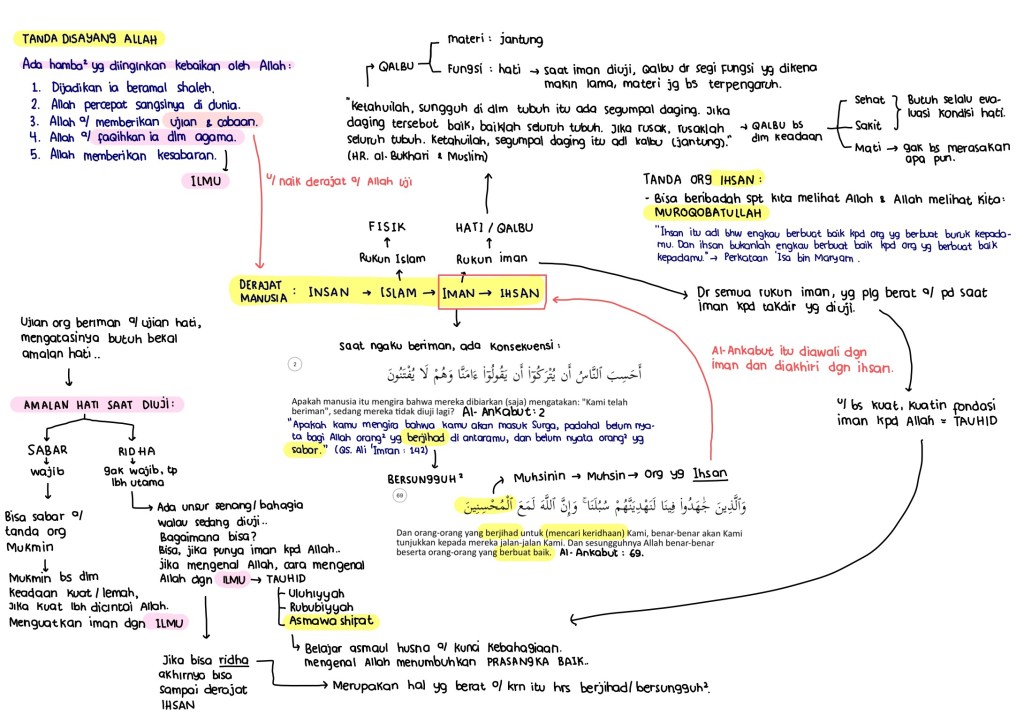 TANDA DISAYANG ALLAH
Ada hamba² yg diinginkan kebaikan oleh Allah:
1. Dijadikan ia beramal shaleh.
2. Allah percepat sangsinya di dunia.
3. Allah a/ memberikan ujian & cobaan.
4. Allah a/ faqihkan ia dlm agama.
5. Allah memberikan kesabaran.
ILMU
u/ naik derajat a/ Allah uji
QALBU
materi : jantung
Fungsi : hati → saat iman diuji, Qalbu dr segi fungsi yg dikena
makin lama, materi jg bs terpengaruh.
"Ketahuilah, sungguh di dlm tubuh itu ada segumpal daging. Jika
daging tersebut baik, baiklah seluruh tubuh. Jika rusak, rusaklah
seluruh tubuh. Ketahuilah, segumpal daging itu adl kalbu (jantung)."
(HR. al-Bukhari & Muslim)
→ QALBU bs
dlm keadaan
Sehat
Sakit
Butuh selalu eva-
luasi kondisi hati.
Mati → gak bs merasakan
apa pun.
TANDA ORG IHSAN :
- Bisa beribadah spt kita melihat Allah & Allah melihat kita:
MUROQOBATULLAH
"Ihsan itu adl bhw engkau berbuat baik kpd org yg berbuat buruk kepada-
mu. Dan ihsan bukanlah engkau berbuat baik kpd org yg berbuat baik
kepadamu." → Perkataan 'Isa bin Maryam.
FISIK
HATI / QALBU
Rukun Islam
Rukun iman
DERAJAT
MANUSIA : INSAN → ISLAM → IMAN → IHSAN
Dr semua rukun iman, yg plg berat a/ pd saat
iman kpd takdir yg diuji.
Al-Ankabut itu diawali dgn
iman dan diakhiri dgn ihsan.
u/ bs kuat, kuatin fondasi
iman kpd Allah = TAUHID
Ujian org beriman a/ ujian hati,
mengatasinya butuh bekal
amalan hati..
AMALAN HATI SAAT DIUJI:
SABAR
wajib
RIDHA
gak wajib, tp
lbh utama
Bisa sabar a/
tanda org
Mukmin
Mukmin bs dlm
keadaan kuat / lemah,
Jika kuat lbh dicintai Allah.
Menguatkan iman dgn ILMU
Ada unsur senang/bahagia
walau sedang diuji..
Bagaimana bisa?
Bisa, jika punya iman kpd Allah..
jika mengenal Allah, cara mengenal
Allah dgn ILMU → TAUHID
Uluhiyyah
Rububiyyah
Asmawa shifat
Belajar asmaul husna a/ kunci kebahagiaan.
mengenal Allah menumbuhkan PRASANGKA BAIK..
Jika bisa ridha
akhirnya bisa
sampai derajat
IHSAN
Merupakan hal yg berat a/ krn itu hrs berjihad/bersungguh².
saat ngaku beriman, ada konsekuensi :
2
أَحَسِبَ ٱلنَّاسُ أَن يُتْرَكُوٓا۟ أَن يَقُولُوٓا۟ ءَامَنَّا وَهُمْ لَا يُفْتَنُونَ
Apakah manusia itu mengira bahwa mereka dibiarkan (saja) mengatakan: "Kami telah
beriman", sedang mereka tidak diuji lagi? Al- Ankabut: 2
"Apakah kamu mengira bahwa kamu akan masuk Surga, padahal belum nya-
ta bagi Allah orang² yg berjihad di antaramu, dan belum nyata orang² yg
sabar." (QS. Ali 'Imran : 142)
BERSUNGGUH²
Muhsinin → Muhsin → org yg Ihsan
69
وَٱلَّذِينَ جَٰهَدُوا۟ فِينَا لَنَهْدِيَنَّهُمْ سُبُلَنَا ۚ وَإِنَّ ٱللَّهَ لَمَعَ ٱلْمُحْسِنِينَ
Dan orang-orang yang berjihad untuk (mencari keridhaan) Kami, benar-benar akan Kami
tunjukkan kepada mereka jalan-jalan Kami. Dan sesungguhnya Allah benar-benar
beserta orang-orang yang berbuat baik. Al- Ankabut : 69.